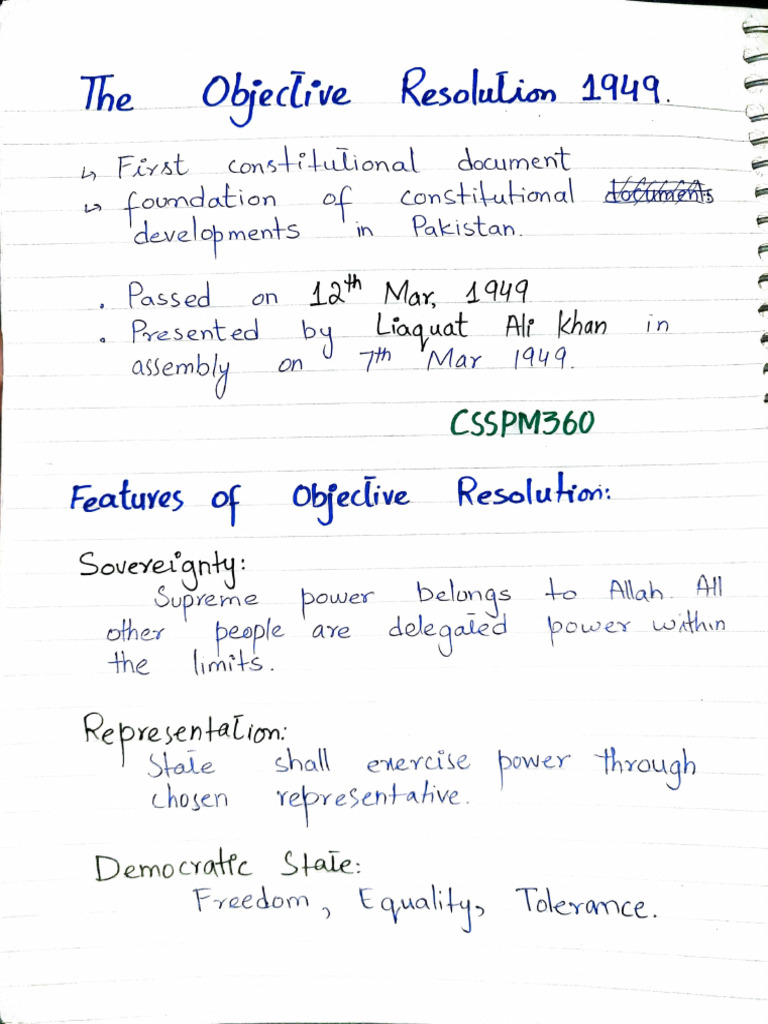 The Objective Resolution 1949.
↳ First constitutional document
↳ foundation of constitutional documents
developments in Pakistan.
. Passed on 12th Mar, 1949
. Presented by Liaquat Ali Khan in
assembly on 7th Mar 1949.
CSSPM360
Features of Objective Resolution:
Sovereignty:
Supreme power belongs to Allah. All
other people are delegated power within
the limits.
Representation:
State shall exercise power through
chosen representative.
Democratic State:
Freedom, Equality, Tolerance.